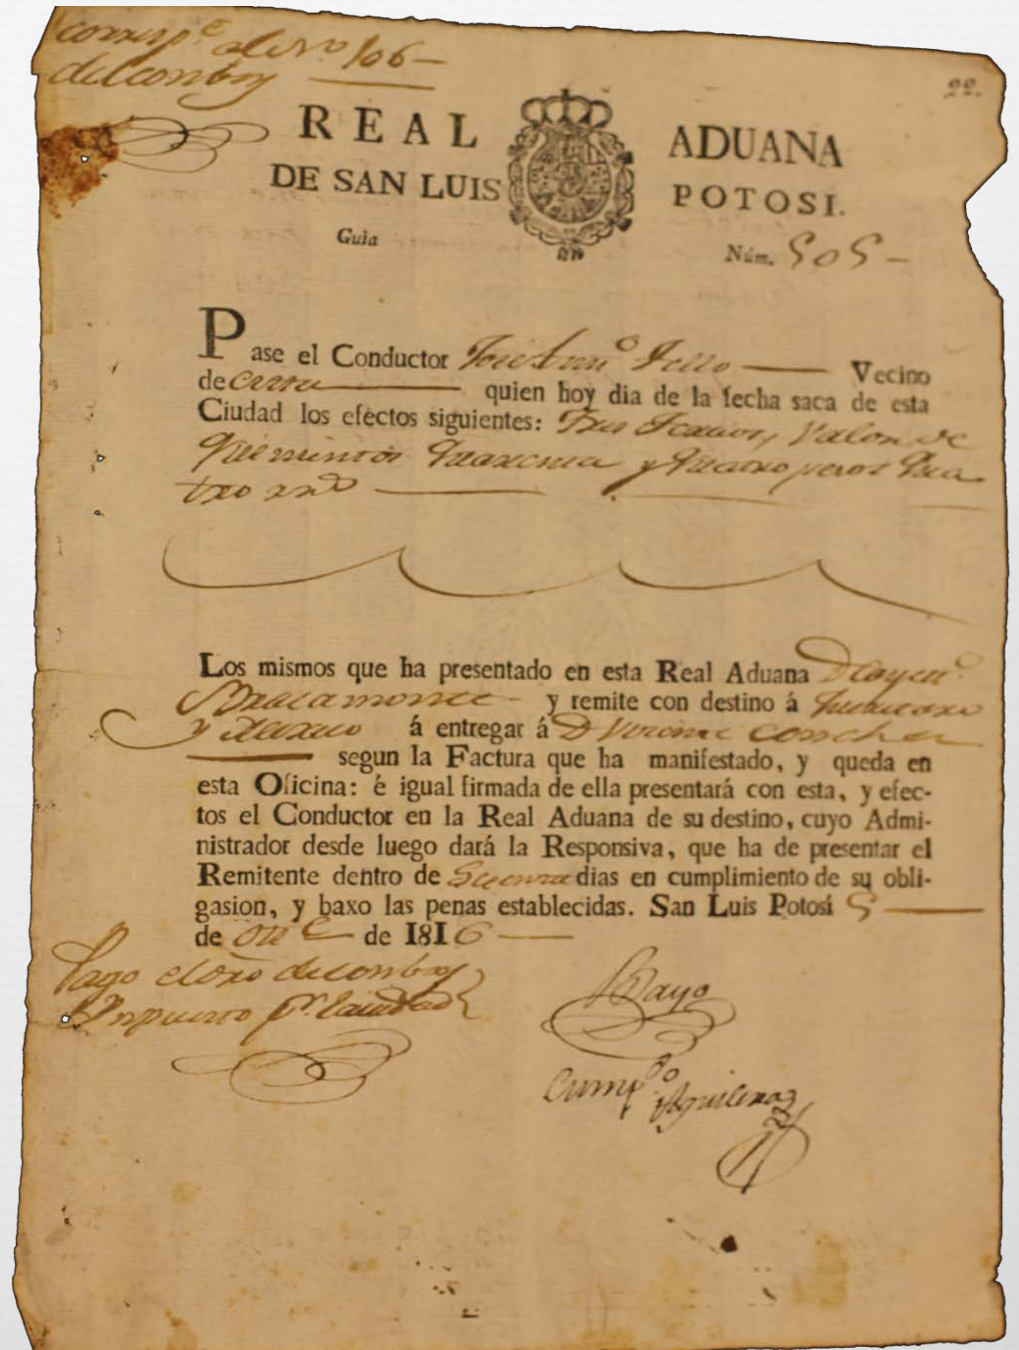 corresp.e al N.o 106
del comboy
22.
REAL ADUANA
DE SAN LUIS POTOSI.
Guia Núm. 505
Pase el Conductor José Ant.o Tello Vecino
de quien hoy dia de la fecha saca de esta
Ciudad los efectos siguientes: Tres Tercios, Valor de
Quinientos Quarenta y Quatro pesos Qua
tro rr.s
Los mismos que ha presentado en esta Real Aduana D Cayet.o
Bracamonte y remite con destino á
á entregar á D Vicente Concha
segun la Factura que ha manifestado, y queda en
esta Oficina: é igual firmada de ella presentará con esta, y efec-
tos el Conductor en la Real Aduana de su destino, cuyo Admi-
nistrador desde luego dará la Responsiva, que ha de presentar el
Remitente dentro de dias en cumplimiento de su obli-
gasion, y baxo las penas establecidas. San Luis Potosí 5
de de 1816
Pago el dro del comboy
Bayo
Cump.do Aguilera